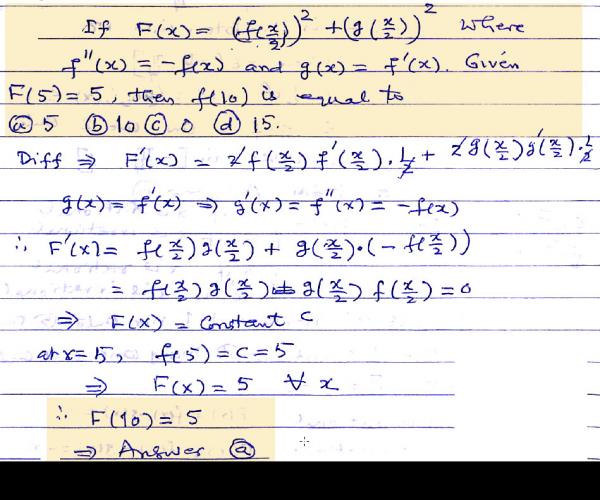 If F(x) = (f(x/2))² + (g(x/2))² where
f''(x) = -f(x) and g(x) = f'(x). Given
F(5) = 5, then f(10) is equal to
ⓐ 5 ⓑ 10 ⓒ 0 ⓓ 15.
Diff ⇒ F'(x) = 2 f(x/2) f'(x/2) · 1/2 + 2 g(x/2) g'(x/2) · 1/2
g(x) = f'(x) ⇒ g'(x) = f''(x) = -f(x)
∴ F'(x) = f(x/2) g(x/2) + g(x/2) · (-f(x/2))
= f(x/2) g(x/2) - g(x/2) f(x/2) = 0
⇒ F(x) = Constant C
at x = 5, f(5) = C = 5
⇒ F(x) = 5 ∀ x
∴ F(10) = 5
⇒ Answer ⓐ